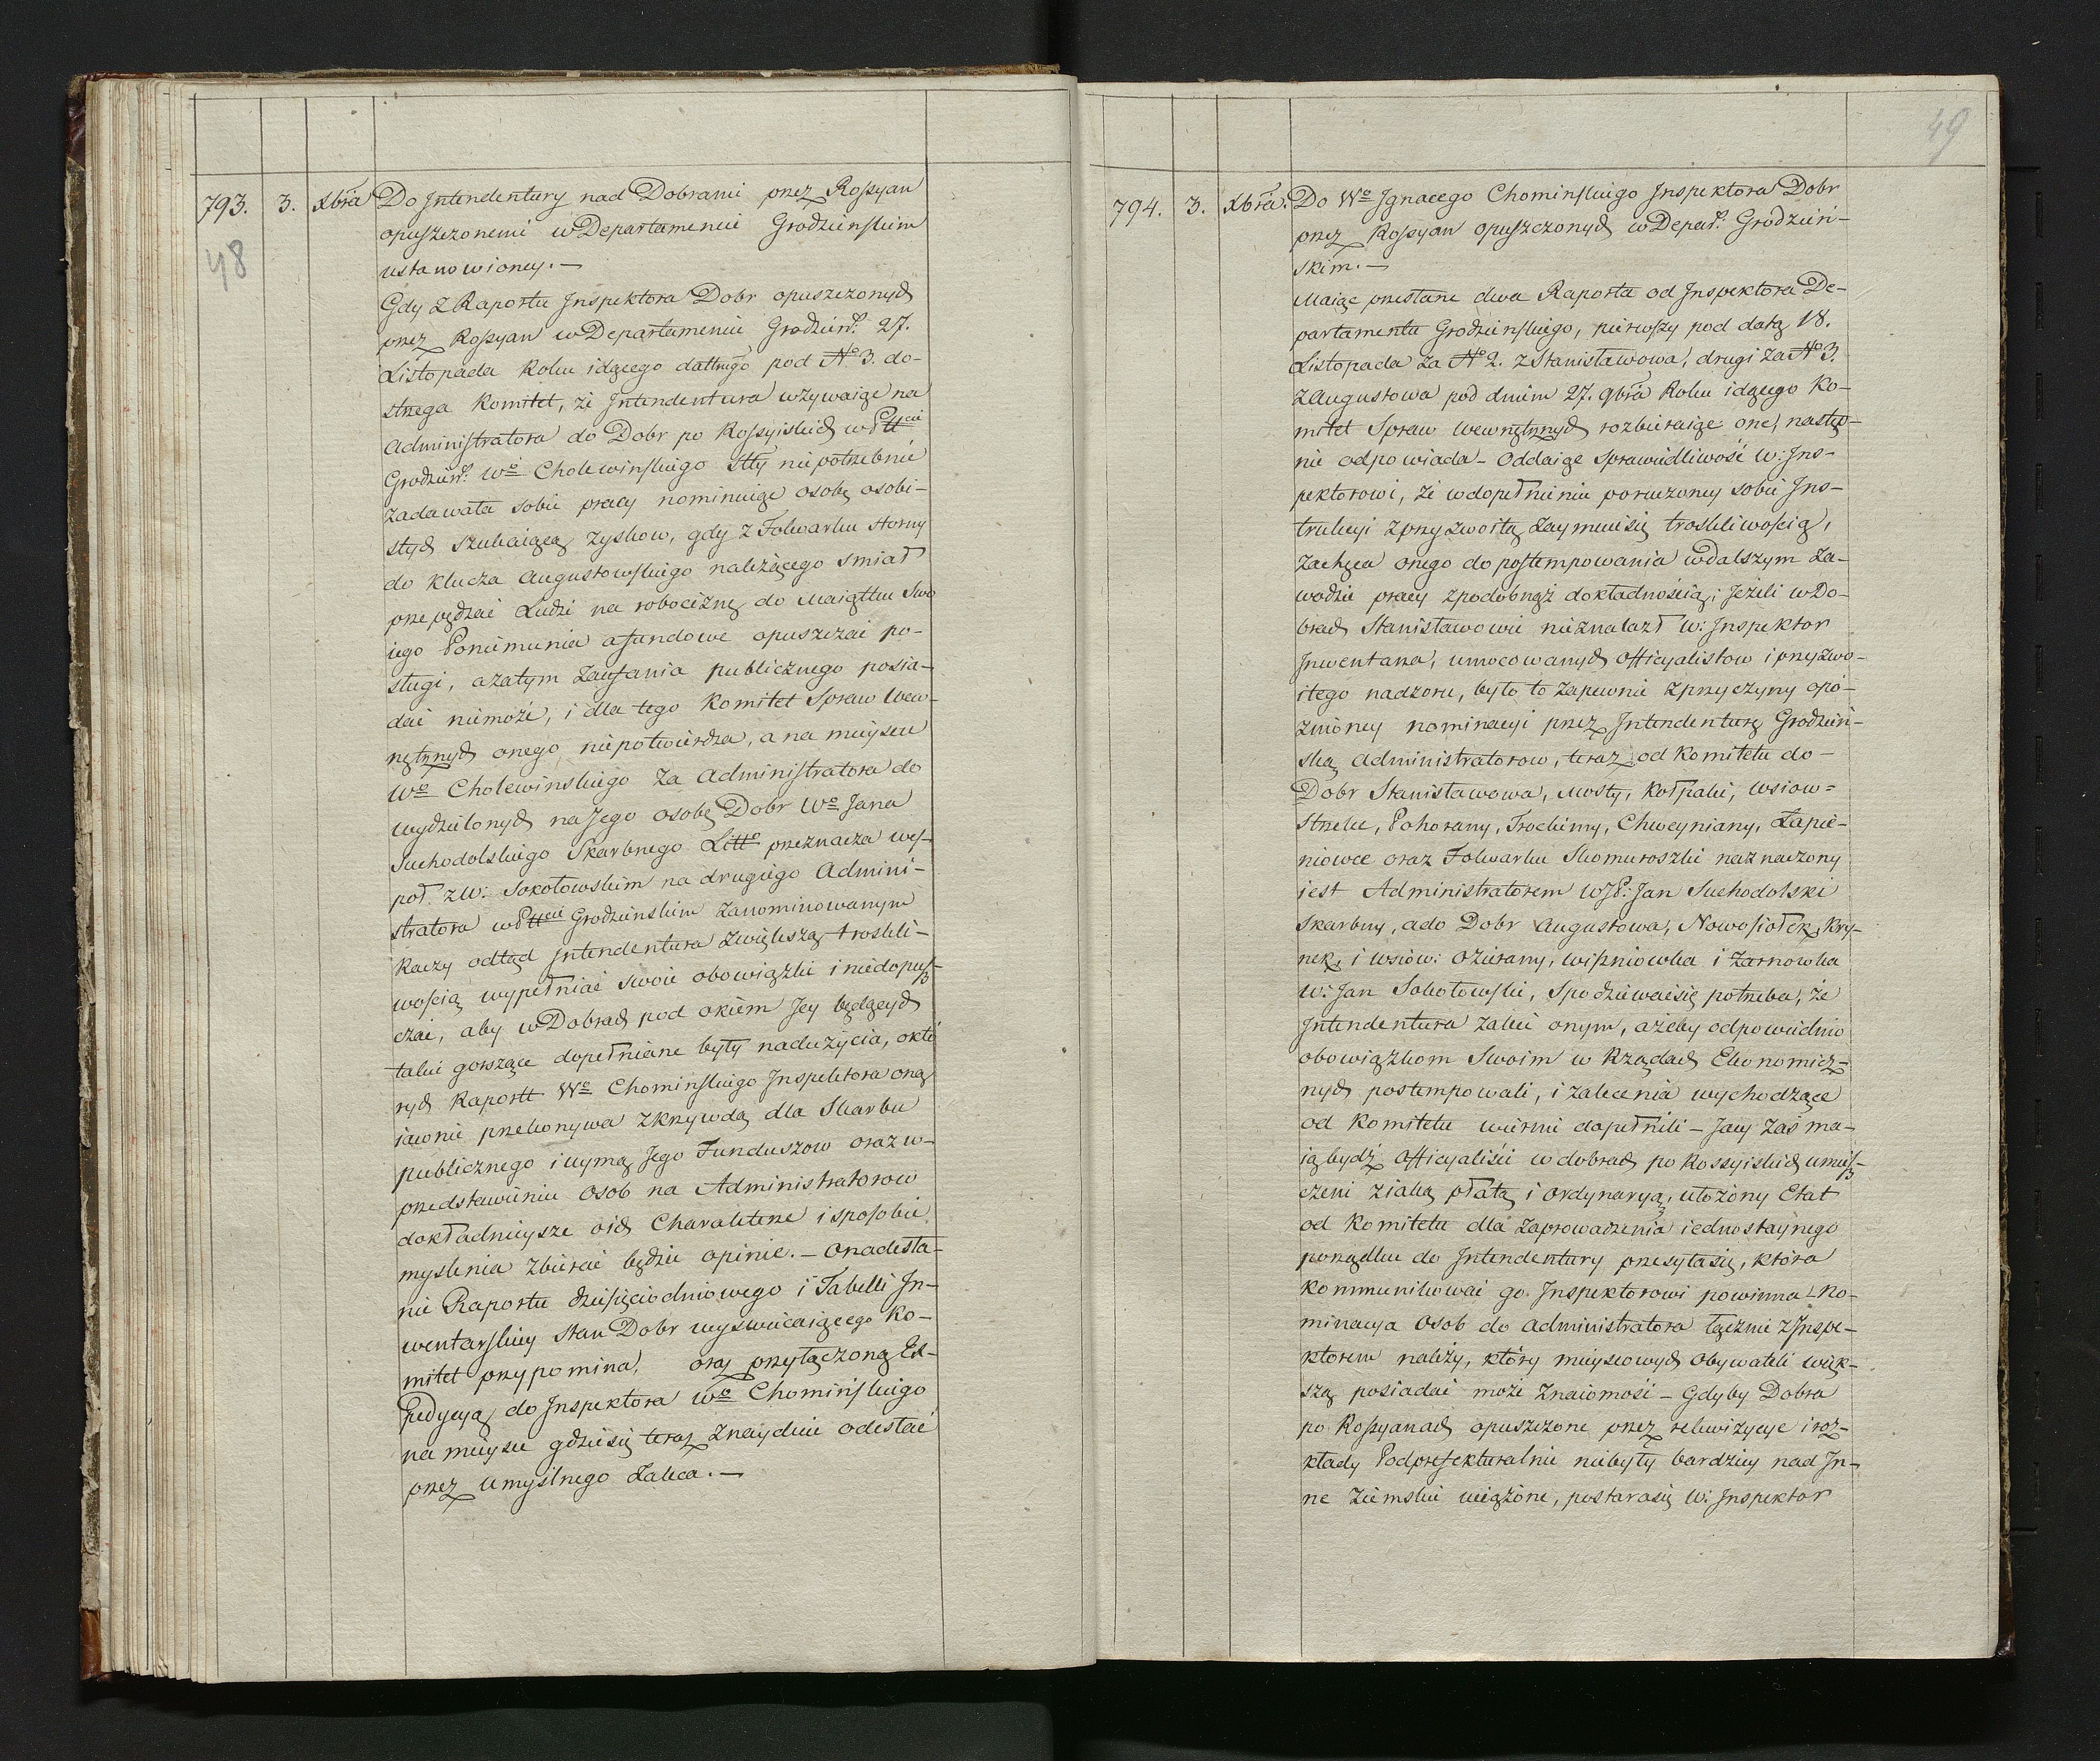 793. 3. Xbra Do Intendentury nad Dobrami przez Rossyan
48
opuszczonemi w Departamencie Grodzieńskim
ustanowioney. —
Gdy z Raportu Inspektora Dobr opuszczonych
przez Rossyan w Departamencie Grodzieńs: 27.
Listopada Roku idącego dattwgo pod No 3. do-
strzega Komitet, że Intendentura używaiąc na
Administratora do Dobr po Rossyiskich w Pttcie
Grodzieńs: Wo Cholewińskiego Stty niepotrzebnie
zadawała sobie pracy nominuiąc osobę osobi-
stych szukaiącą zyskow, gdy z Folwarku Horny
do Klucza Augustowskiego należącego smiał
przepędzać Ludzi na robociznę do Maiątku Swo
iego Poniemunia a fundowe opuszczać po-
sługi, a zatym Zaufania publicznego posia-
dać niemoże, i dla tego Komitet Spraw Wew-
nętrznych onego niepotwierdza, a na mieysce
Wo Cholewinskiego za Administratora do
wydzielonych na Jego osobę Dobr Wo Jana
Suchodolskiego Skarbnego Litto przeznacza wes-
poł z W: Sokołowskim na drugiego Admini-
stratora w Pttcie Grodzieńskim zanominowanym
Raczy odtąd Intendentura zwiększą troskli-
wością wypełniać swoie obowiązki i niedopusz-
czać, aby w Dobrach pod okiem Jey będących
takie gorszące dopełniane były nadużycia, októ
rych Raportt Wo Chomińskiego Inspektora oną
iawnie przekonywa z krzywdą dla Skarbu
publicznego i uymą Jego Funduszow oraz w
przedstawieniu osob na Administratorow
dokładnieysze oich Charakterze i sposobie
myslenia zbierać będzie opinie. — Onadesła-
nie Raportu dziesięciodniowego i Tabelli In-
wentarskiey stan Dobr wyswiecaiącego Ko-
mitet przypomina, oraz przyłączoną Ex-
pedycyą do Inspektora Wo Chomińskiego
na mieysce gdziesię teraz znayduie odesłać
przez umyślnego Zaleca. —
49
794. 3. Xbra. Do Wo Ignacego Chominskiego Inspektora Dobr
przez Rossyan opuszczonych w Depart: Grodzień-
skim. —
Maiąc przesłane dwa Raporta od Inspektora De-
partamentu Grodzieńskiego, pierwszy pod datą 18.
Listopada za No 2. z Stanisławowa, drugi za No 3.
z Augustowa pod dniem 27. 9bra Roku idącego Ko-
mitet Spraw wewnętrznych rozbieraiąc one, następ-
nie odpowiada — Oddaiąc Sprawiedliwość W: Ins-
pektorowi, że w dopełnieniu poruczoney sobie Ins-
trukcyi z przyzwoitą Zaymuiesię troskliwością,
zachęca onego do postempowania w dalszym za-
wodzie pracy z podobnąż dokładnością; Jeżeli w Do-
brach Stanisławowie nieznalazł W: Inspektor
Inwentarza, umocowanych officyalistow i przyzwo-
itego nadzoru, było to zapewnie z przyczyny opó-
znioney nominacyi przez Intendenturę Grodzień-
ską Administratorow, teraz od Komitetu do
Dobr Stanisławowa, Mosty, Kołpaki, wsiow=
Strzelce, Pohorany, Trochimy, Chwcyniany, Łapie-
niowce oraz Folwarku Skomoroszki naznaczony
iest Administratorem WJP: Jan Suchodolski
Skarbny, a do Dobr Augustowa, Nowosiołek, Kry-
nek, i wsiow: Ozierany, Wiszniowka i Żarnowka
W: Jan Sokołowski, Spodziewaćsię potrzeba, że
Intendentura zaleci onym, ażeby odpowiednio
obowiązkom Swoim w Rządach Ekonomicz-
nych postempowali, i zalecenia wychodzące
od Komitetu wiernie dopełnili — Jacy zaś ma-
ią bydz officyaliści w dobrach po Rossyiskich umiesz-
czeni z iaką płatą i ordynaryą, ułożony Etat
od Komitetu dla zaprowadzenia iednostaynego
porządku do Intendentury przesyłasię, która
kommunikować go Inspektorowi powinna — No-
minacya osob do Administratora łącznie z Inspe-
ktorem należy, który mieyscowych obywateli więk-
szą posiadać może znaiomość — Gdyby Dobra
po Rossyanach opuszczone przez rekwizycye i roz-
kłady Podprefekturalnie niebyły bardziey nad In-
ne Ziemskie uciążone, postarasię W: Inspektor